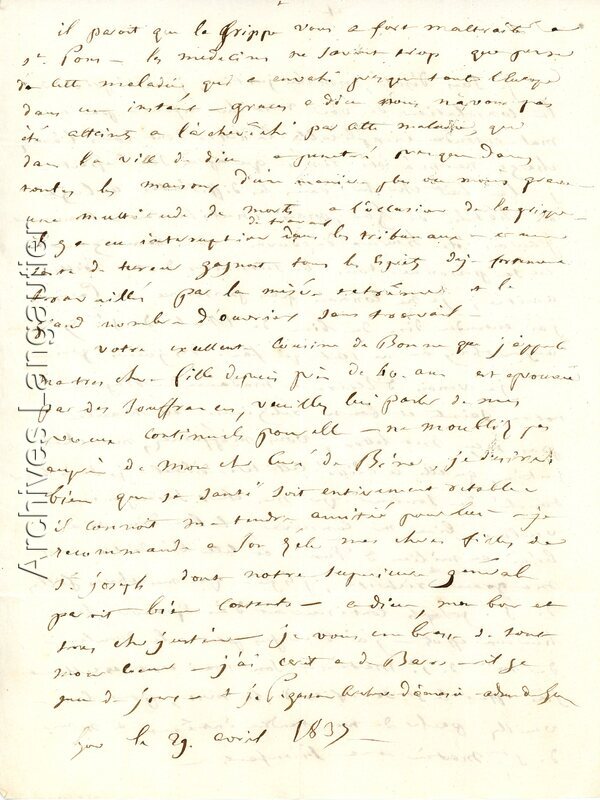 il paroit que la grippe vous a fort maltraité a
St. Pons - les médecins ne savent trop que penser
de cette maladie, qui a envahi presque tout l'Europe
dans un instant - graces a dieu nous n'avons pas
été atteints a l'archevêché par cette maladie, qui
dans la ville de a penetré presque dans
toutes les maisons d'une maniere plus ou moins grave -
une multitude de morts a l'occasion de la grippe -
il y a eu interruption de travail dans les tribunaux - et une
sorte de terreur gagnoit tous les esprits deja fortement
travaillés par la misère extrême et le
grand nombre d'ouvriers sans travail
votre excellente cousine de Bonne que j'appelle
ma tres chere fille depuis près de 40 ans est eprouvée
par des souffrances, veuillez lui parler de mes
vœux continuels pour elle - ne m'oubliez pas
auprès de mon cher curé de , je desirerois
bien que sa santé soit entierement retablie
il connoit ma tendre amitié pour lui - je
recommande a son zèle mes cheres filles de
St. joseph dont notre superieure général
paroit bien contente - a dieu, mon bon et
tres cher justin - je vous embrasse de tout
mon cœur - j'ai ecrit a de Barre il y a
peu de jours - + j. p. gaston archev
le 29. avril 1837
Archives Langautier